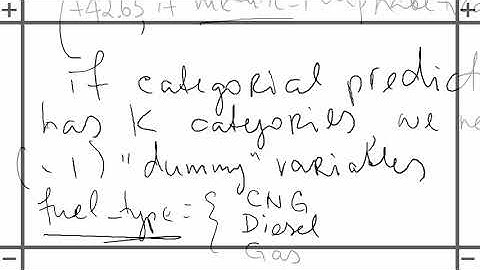 +42.65 if
if categorial predict
has K categories, we ne
1) "dummy" variables
fuel_type = { CNG
Diesel
Gas